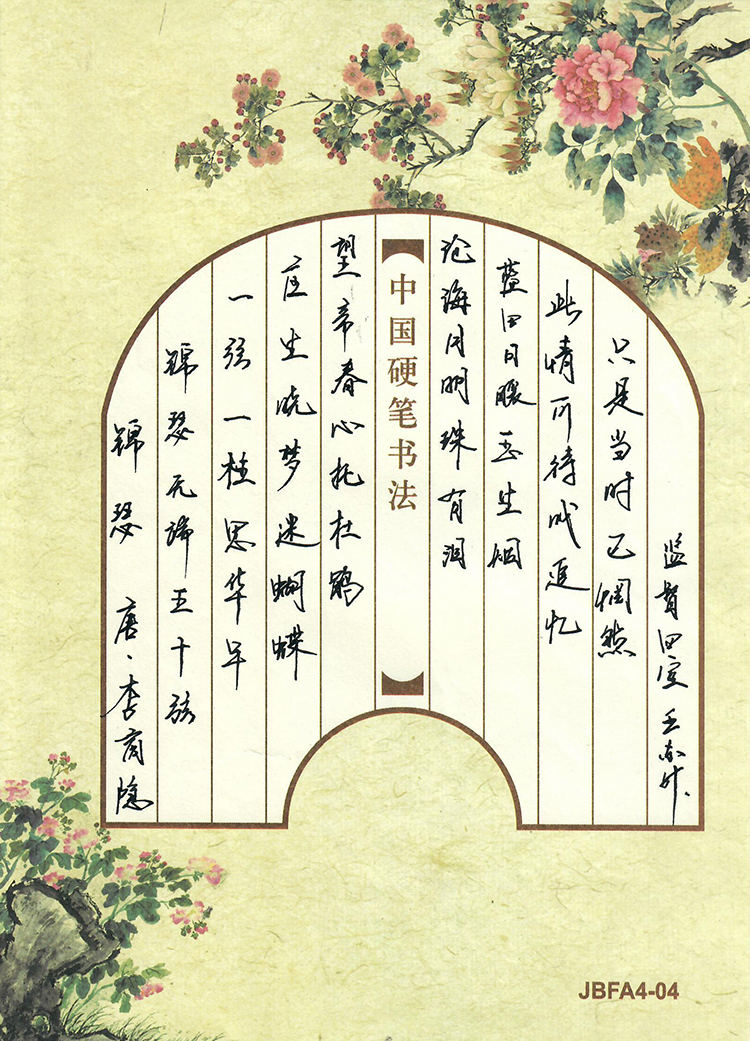 锦瑟 唐·李商隐
锦瑟无端五十弦
一弦一柱思华年
庄生晓梦迷蝴蝶
望帝春心托杜鹃
中国硬笔书法
沧海月明珠有泪
蓝田日暖玉生烟
此情可待成追忆
只是当时已惘然
监督田
JBFA4-04